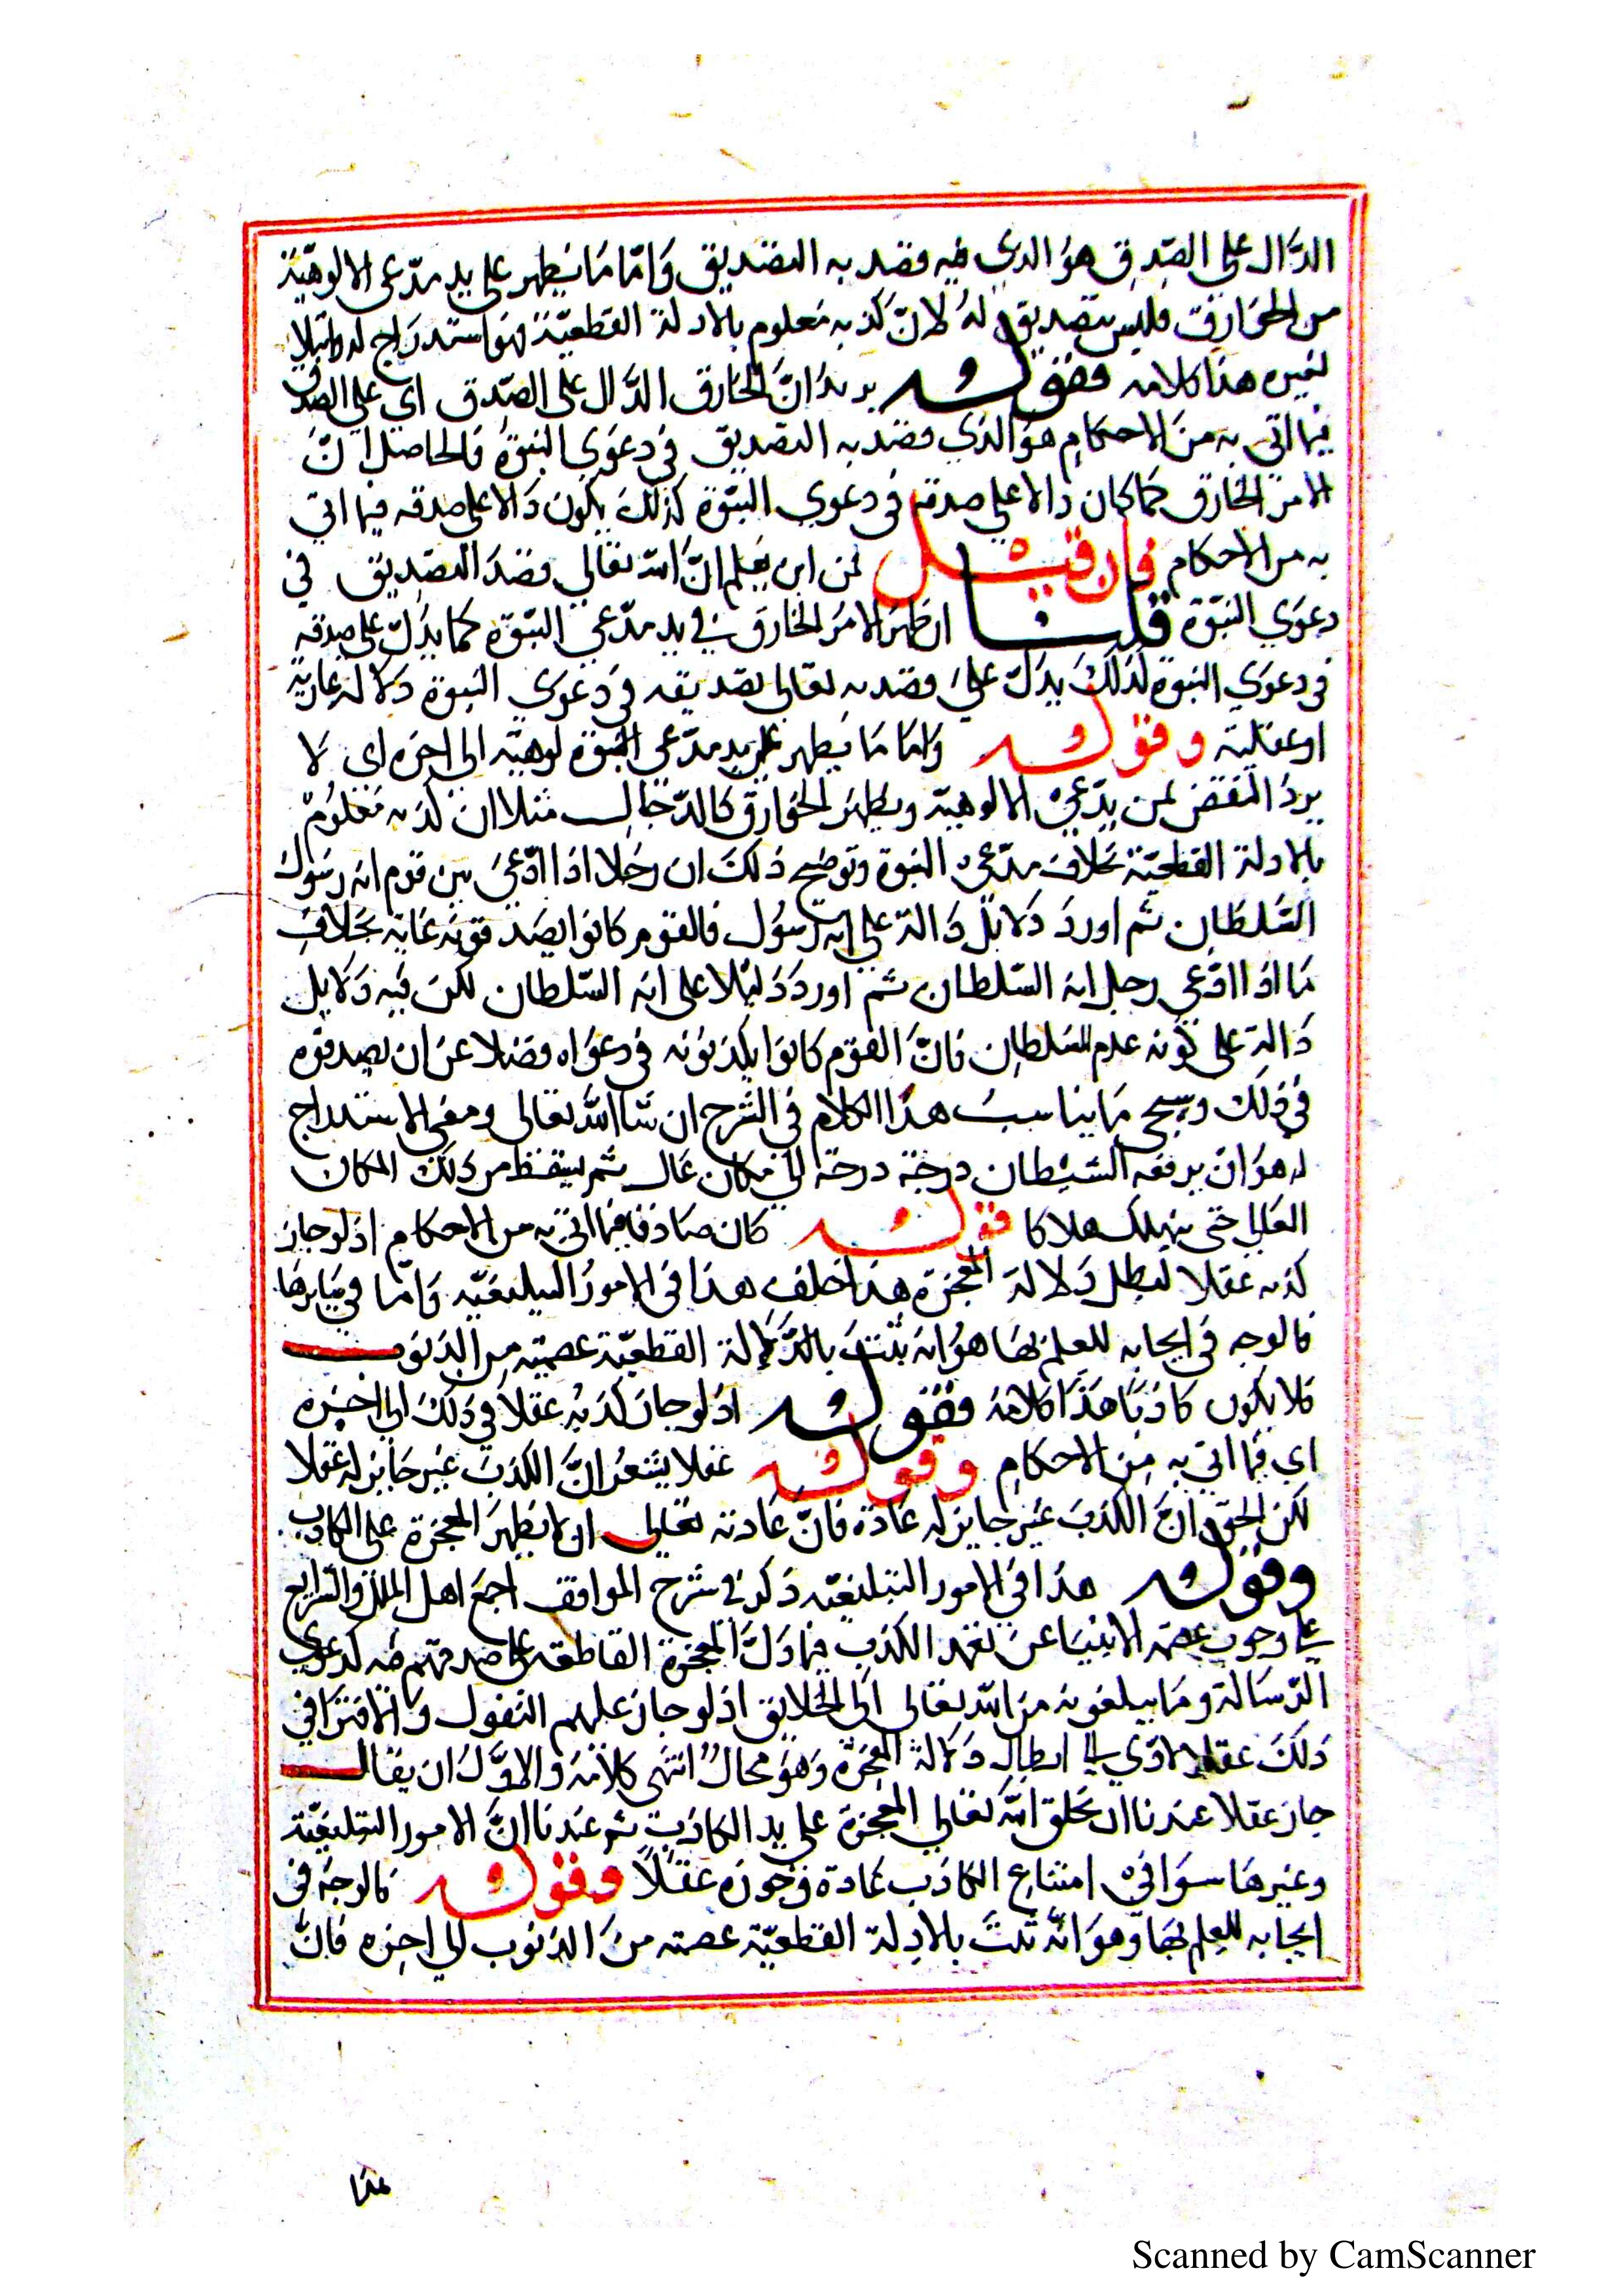 الدَّال على الصّدق هو الذي فيه قصد به التصديق وَامّا مَا يَظهر على يد مدّعى الالوهيّة
من الخَوَارِق فليس بتصديق لهُ لانّ كذبه مَعلوم بالادلة القطعيّة فهوَ استدرَاج له وابتلا
لغيره هذا كلامه فقوله يريدُ انّ الخَارق الدَّال على الصّدق اي على الصّدق
فيما اتى به منَ الاحكامِ هوَ الذي قصد به التصديق في دعوَي النبوّة فَالحاصل انَّ
الامرَ الخارق كما كان دالا على صدقه في دعوي النبوّة كذلكَ يكون دَالا على صدقه فيما اتي
به من الاحكام فان قيل فمن اين يعلم انّ اللّه تعَالي قصَدَ التصدِيق في
دعوَي النبوّة قلنا ان ظهرَ الامرُ الخارق في يد مدّعي النبوّة كما يدُلّ على صدقه
في دعوَي النبوة لذلكَ يدَلّ عليَ قصَده تعالى تصديقه في دَعوَي النبوة دَلالة عَادية
او عقليّة وقوله وَامّا مَا يَظهر على يد مدّعى النبوّة لوهيّة الى اخِره اي لَا
يردُ النقض بمن يدّعيْ الالوهيّة ويظهرُ الخوَارق كالدّجَال مثلا ان كذبه مَعلُومْ
بالادلة القطعيّة بخلاف مدّعىْ النبوة وتوضيح ذلكَ ان رجَلا اذا ادّعيَ بين قوم انه رسَول
السَّلطان ثم اوردَ دَلايلَ دَالة على انه رَسُول فالقوم كانوا يصَدقونه غَاية بخلافِ
مَا اذا ادّعي رجل انه السّلطان ثم اوردَ دَليْلا على انه السّلطان لكن فيه دَلايل
دَالة على كونه عدم السّلطان فانّ القوَم كانوا يكذبوُنه في دعوَاه فضلا عَن ان يصدقوه
في ذلك وسيجي مَا يناسبُ هذا الكلام في الشرح ان شَا اللّه تعَالى ومعنى الاستدراج
له هوَ ان يرفعه الشيْطان درجَة درجة الي مَكان عَال ثم يسقط من ذلك المكان
العَالي حَتى يهلك هلاكا قوله كان صَادقا فيما اتي به من الاحكام اذ لو جاز
كذبه عقلا لبطل دَلالة المعجزة هذا خلف هذا في الامور التبليغيّه وَامّا في غيرهَا
فالوجه في ايجابه للعلم بهَا هوَ انه يثبتَ بالدَّلالة القطعيّة عصمته من الذنوب
فلا يكون كاذبًا هَذا كلامهُ فقوله اذ لو جاز كذبهُ عقلا في ذلكَ الي اخِره
اي فيما اتي به مِن الاحكامِ وقوله عقلا يشعرُ انّ الكذبَ غيرُ جَايز له عقلا
لكن الحَق انَّ الكذبَ غيرُ جايز له عَادَة فانّ عَادته تعَالي ان لا يظهرَ المعجزة على الكاذب
وقوله هذا في الامور التبليغيّه ذكر في شرح المواقف اجمَع اهل الملل والشرايع
علي وجوب عصمة الانبيَا عن تعمد الكذب فيما دَلَّ المعجزة القاطعة على صدقهم فيه كدعوي
الرّسَالة وَمَا يبلغونه من اللّه تعَالى الى الخلايق اذ لو جاز عليهم التقول وَالافترَا في
ذلكَ عقلا لادّي الي ابطال دَلالة المعجزة وَهوَ محالٌ انتهى كلامهُ والاوّل ان يقال
جاز عقلا عندنا ان يخلق اللّه تعَالي المعجزة على يد الكاذب ثم عندنا انّ الامور التبليغيّة
وغيرهَا سوَا فيْ امتناع الكاذب عَادة وَجوَزه عقلًا وقوله فالوجهُ في
ايجابه للعلم بهَا وَهوَ انّه ثبتَ بالادلة القطعيّة عصمته منَ الذنوب الي اخِره فانَّ
هذا
Scanned by CamScanner